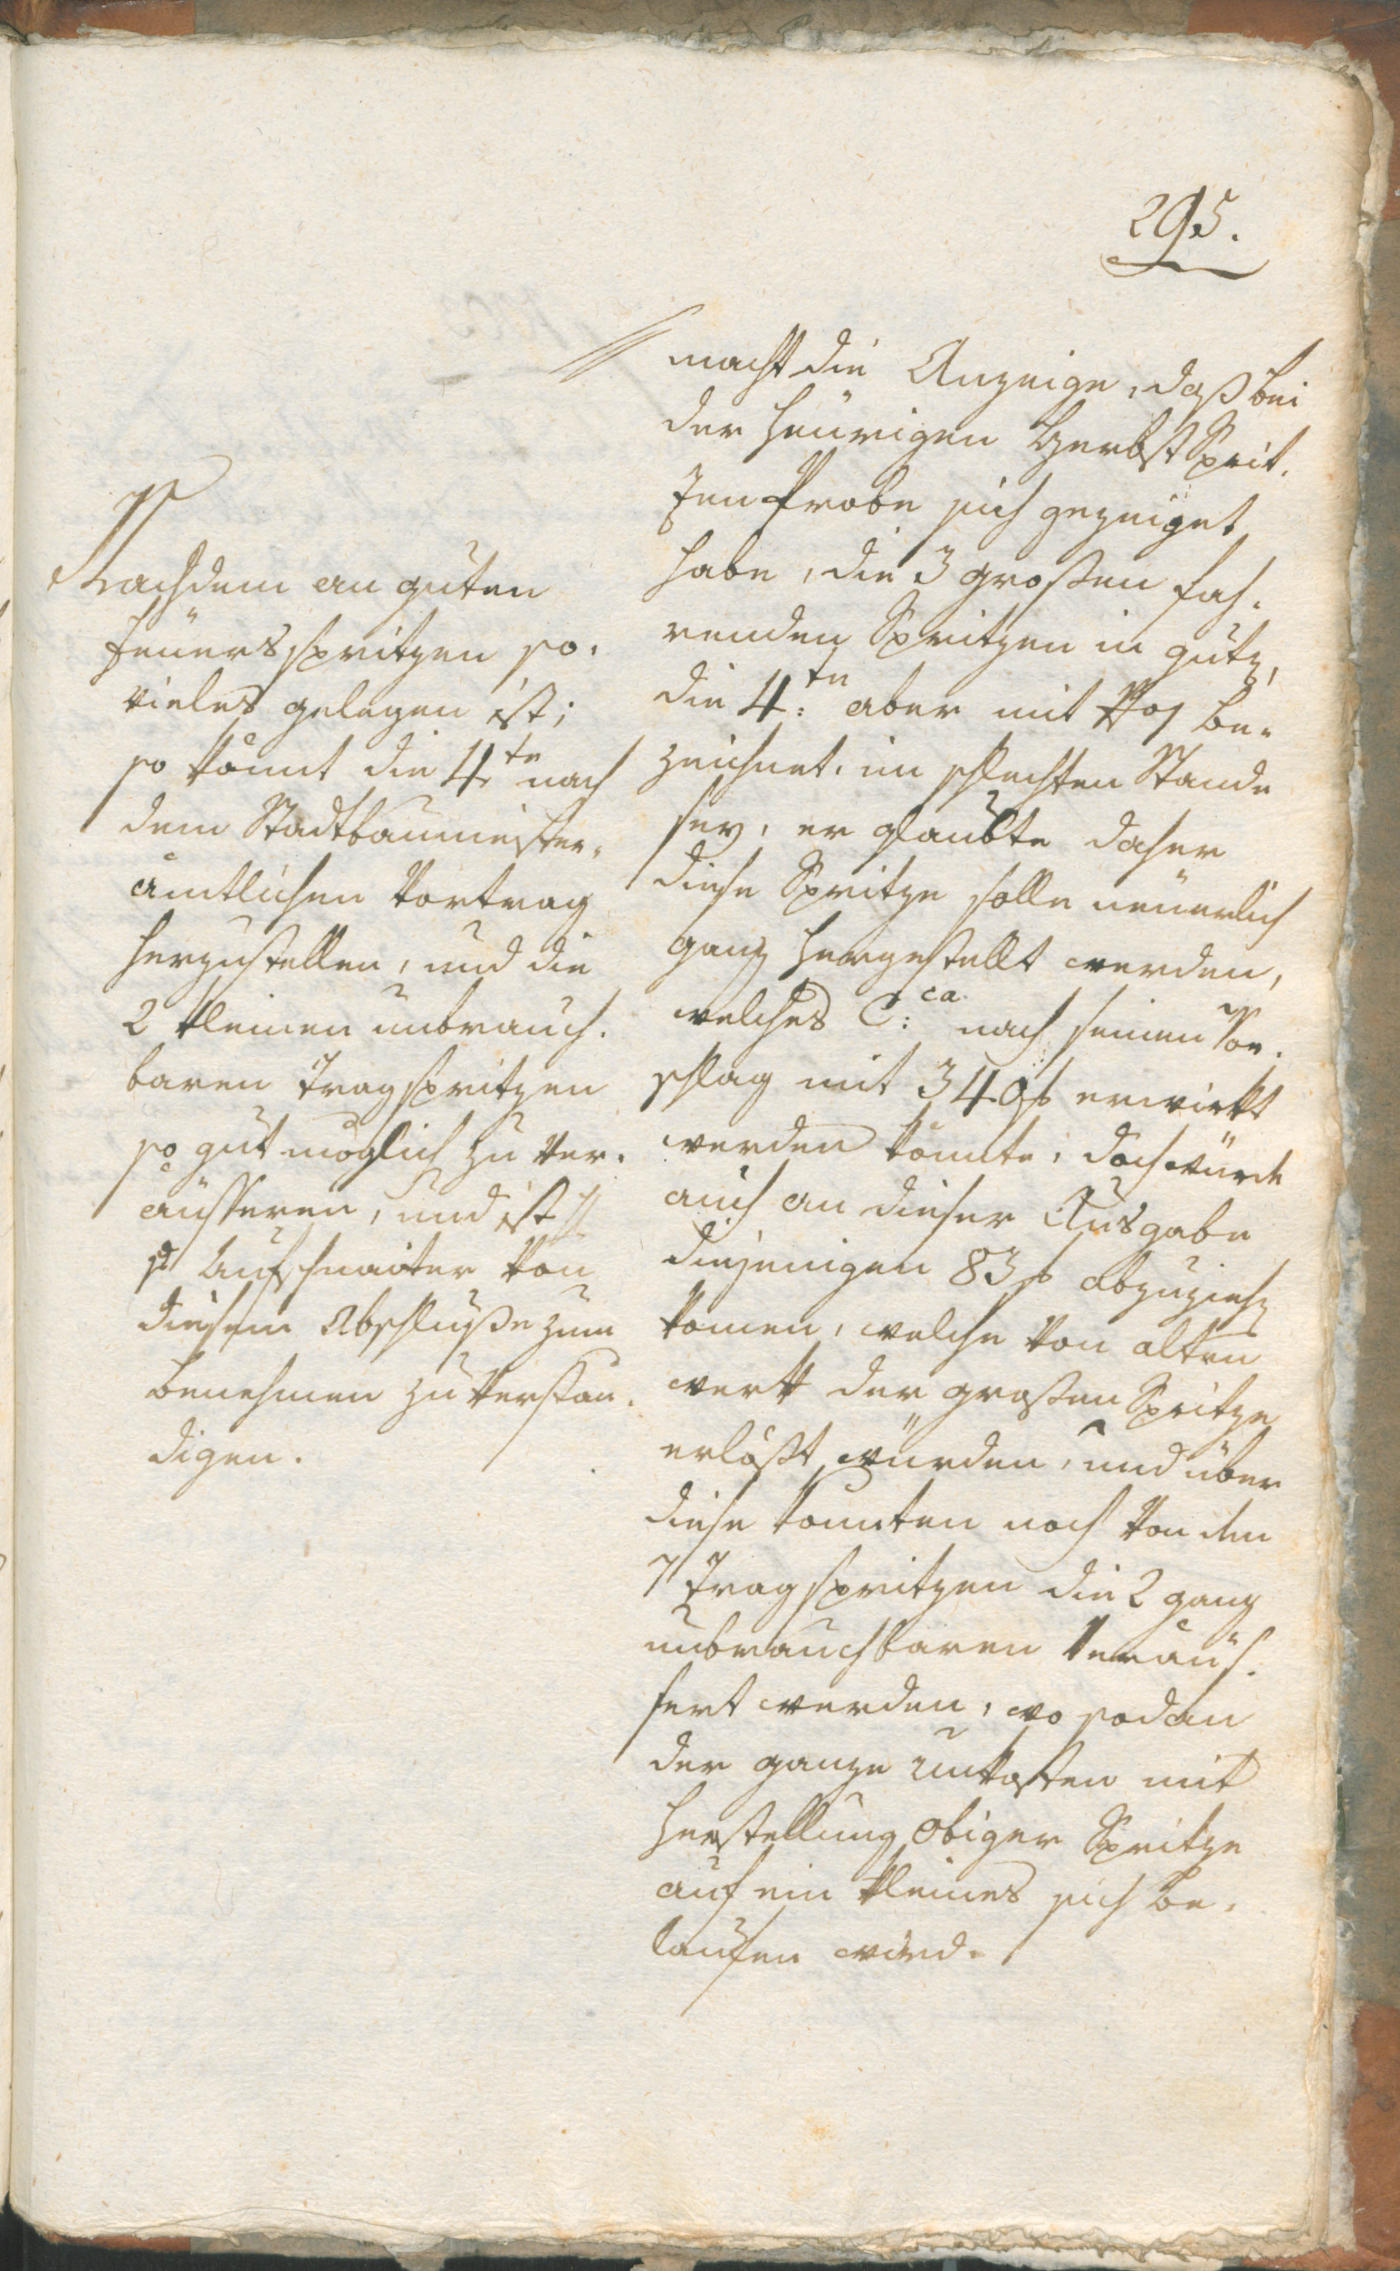 295.
macht die Anzeige, daß bei
der heürigen Herbst Sprit-
zen Probe sich gezeiget
habe, die 3 großen fah-
renden Spritzen in gutn,
die 4:te aber mit be-
zeichnet, im schlechten Stande
sey, er glaubte daher
diese Spritze solle neuerlich
ganz hergestellt werden,
welches C:ca nach seinen Vor-
schlag mit 340 f erwirkt
werden könnte, doch würde
auch an dieser Ausgabe
diejenigen 83 f abzuziehn
komen, welche von alten
werk der großen Spritze
erlößt würden, und über
diese konnten noch von den
7 Tragspritzen die 2 ganz
unbrauchbaren Veräus-
sert werden, wo sodan
der ganze Unkosten mit
Herstellung obiger Spritze
auf ein kleines sich be-
laufen wird.
Nachdem an guten
Feüersspritzen so-
vieles gelegen ist;
so kömt die 4te nach
dem Stadtbaumeister-
ämtlichen Vortrag
herzustellen, und die
2 kleinen unbrauch-
baren Tragspritzen
so gut möglich zu ver-
äusseren, und ist
H Aufschnaiter von
diesem Abschluße zum
Benehmen zu verstän-
digen.